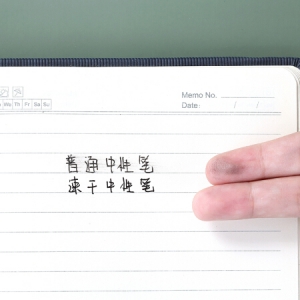 Memo No.
Mo Tu We Th Fr Sa Su
Date: / /
普通中性笔
速干中性笔